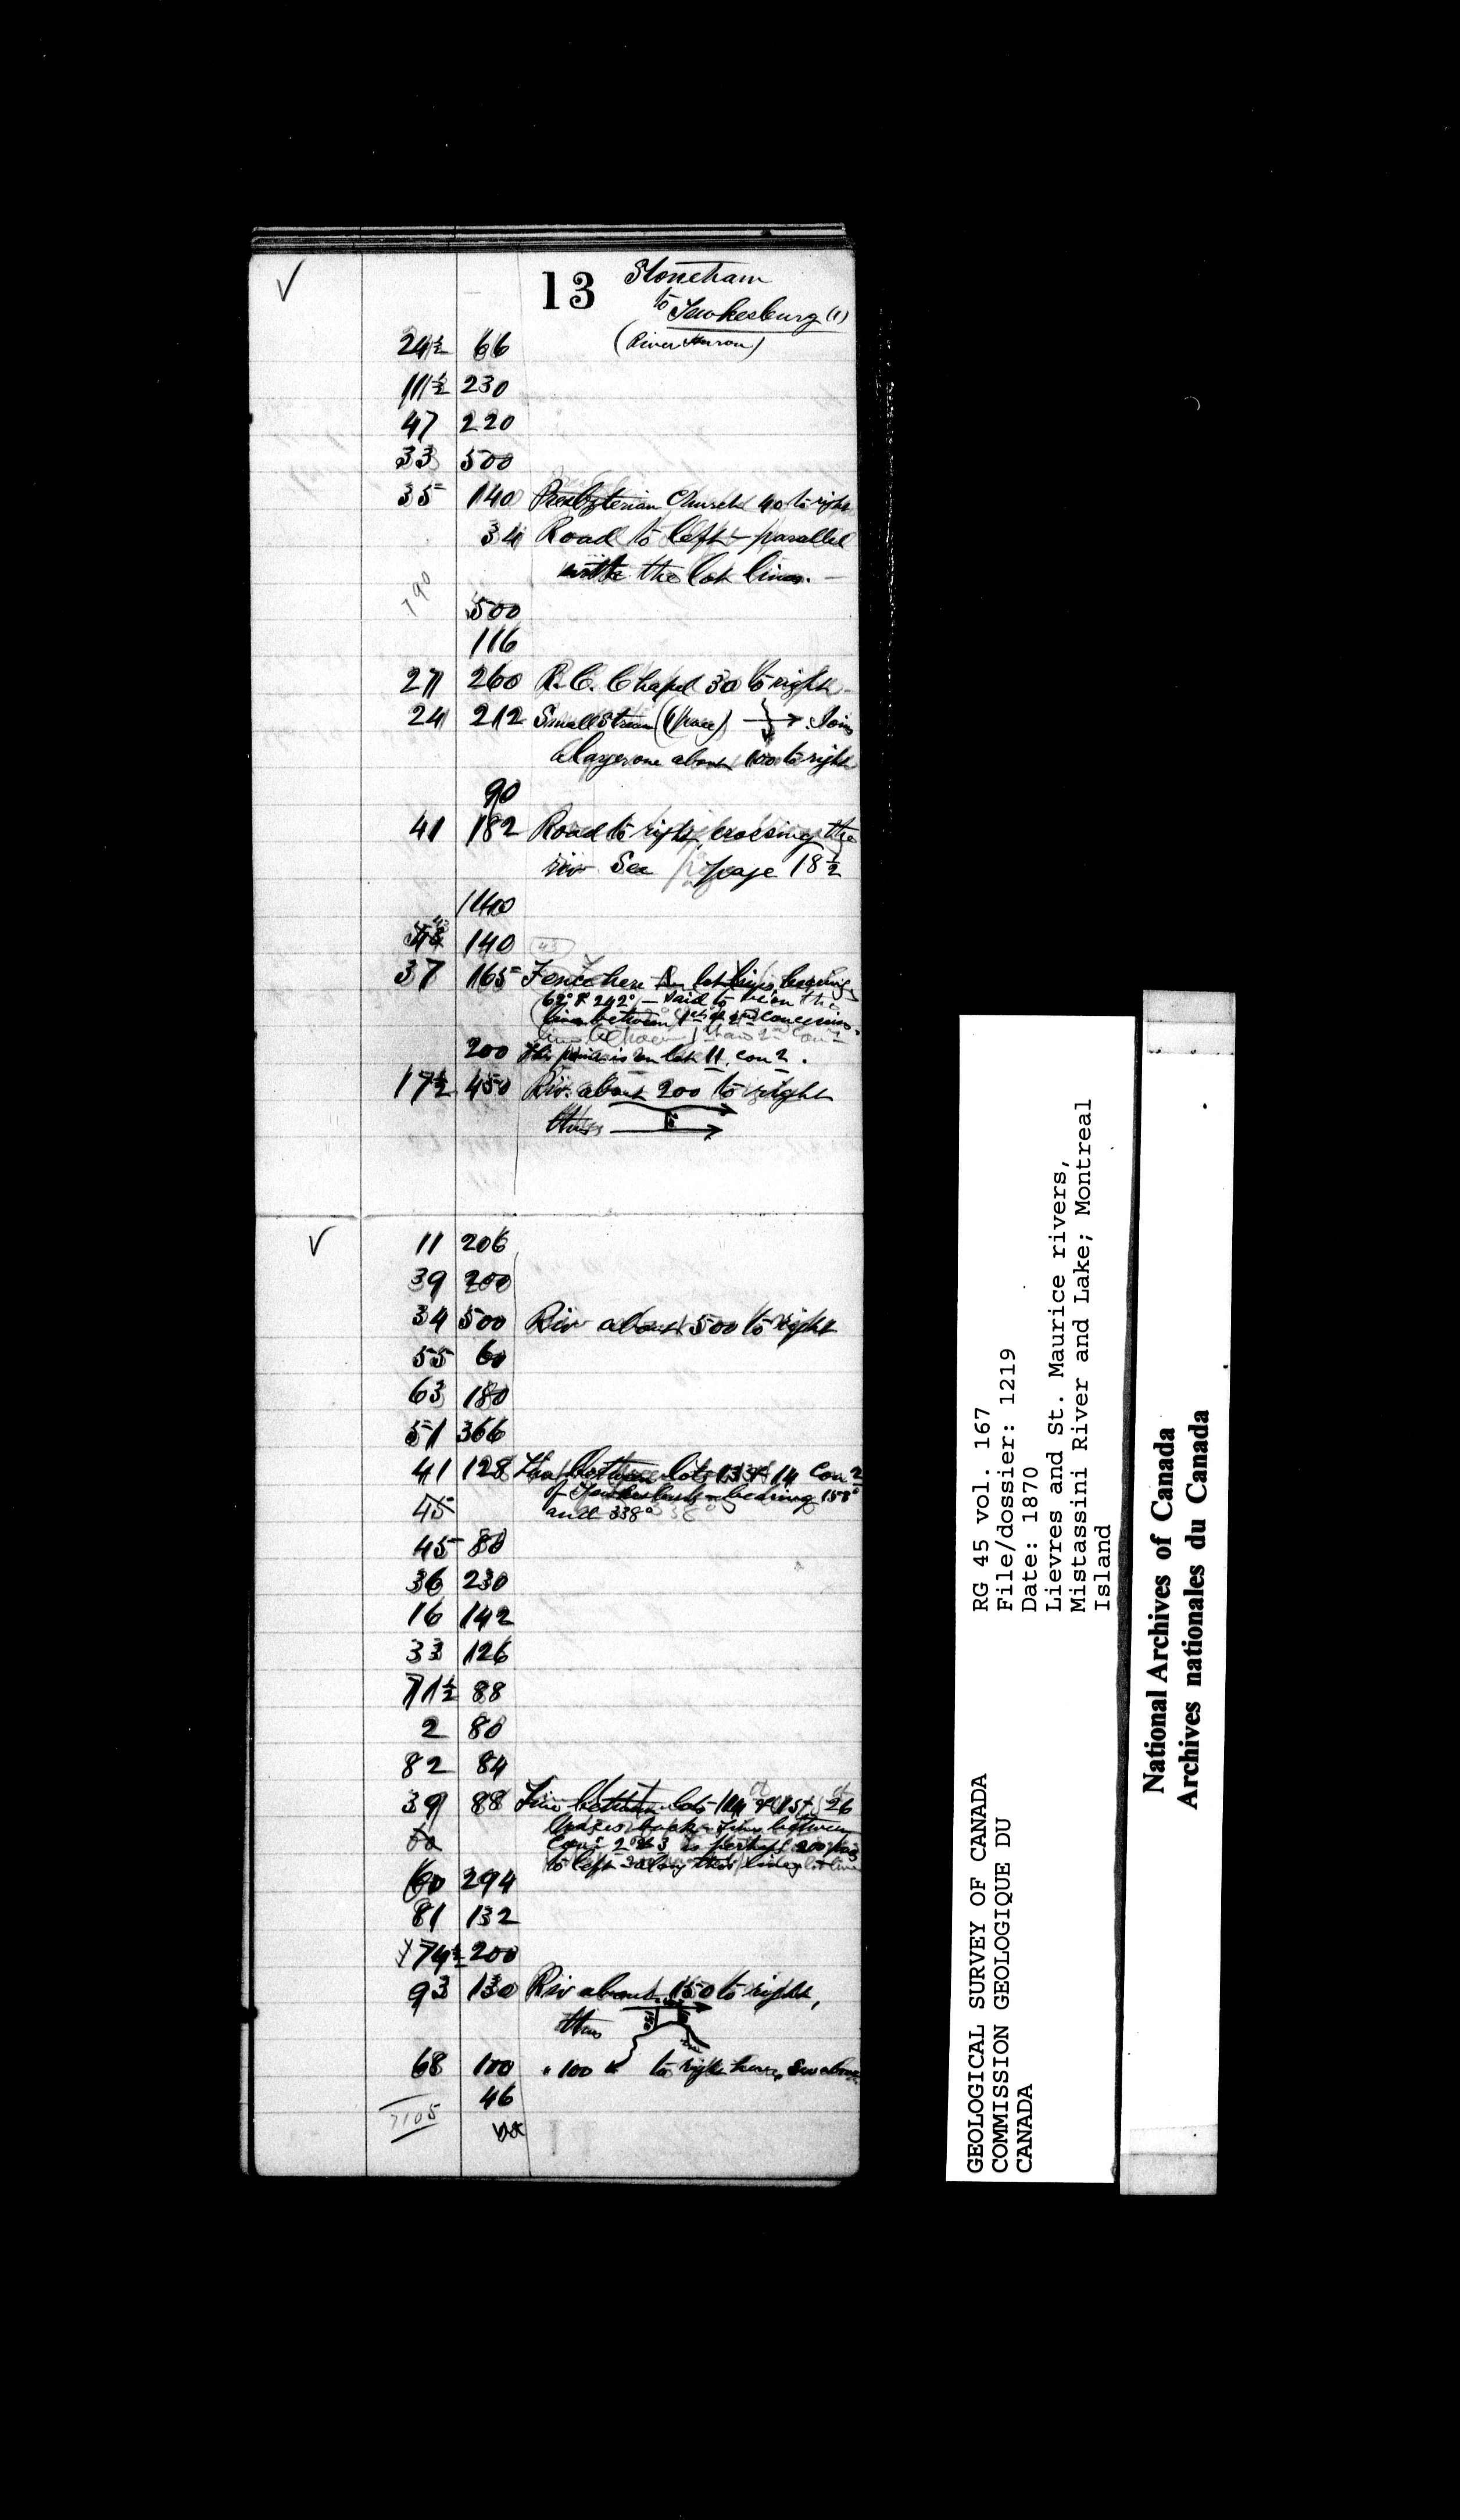 ✓ 13 Stoneham
to Tewkesbury (1)
(River Huron)
24½ 66
11½ 230
47 220
33 500
35 140 Presbyterian Church 40 to right
34 Road to left – parallel
with the lot lines. –
790
500
116
27 260 R.C. Chapel 30 to right
24 212 Small Stream (1 pace) Joins
a larger one about 100 to right
90
41 182 Road to right, crossing the
riv See page 18½
140
43 140 43
37 165 Fence here on lot lines bearing
62° & 242° – said to be on the
line between 1st & 2nd concession
200 This point is on lot 11, con 2.
17½ 450 Riv. about 200 to right
thus
✓ 11 206
39 200
34 500 Riv about 500 to right
55 60
63 180
51 366
41 128 Line between lots 13 & 14 Con 2
of bearing 158°
45 and 338°
45 80
36 230
16 142
33 126
71½ 88
2 80
82 84
39 88 Line between lots 14 & 15 of 26
line between
60 Cons 2 & 3 is perhaps 200
to left along this line
60 294
81 132
74½ 200
93 130 Riv about 150 to right,
thus
68 100 " 100 to right here, See above
46
7105
RG 45 vol. 167
File/dossier: 1219
Date: 1870
Lievres and St. Maurice rivers,
Mistassini River and Lake; Montreal
Island
GEOLOGICAL SURVEY OF CANADA
COMMISSION GEOLOGIQUE DU
CANADA
National Archives of Canada
Archives nationales du Canada